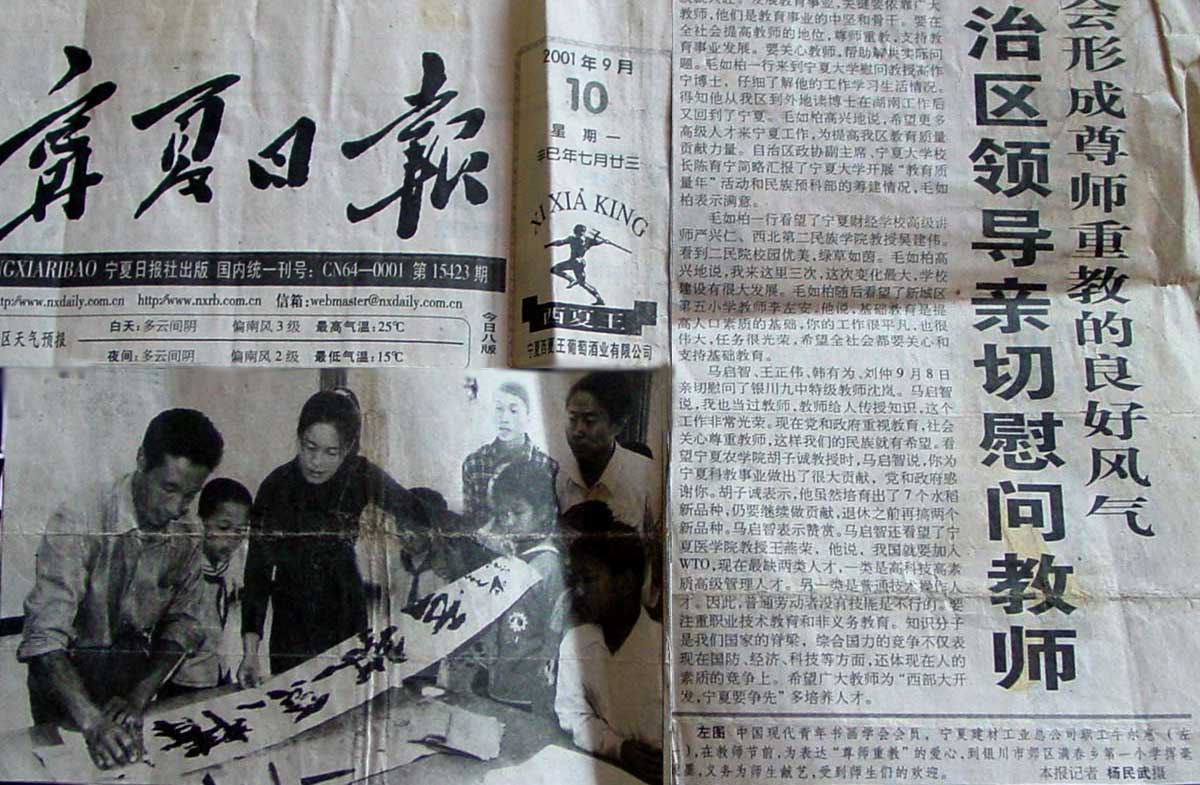 宁夏日报
2001年9月
10
星期一
辛巳年七月廿三
XI XIA KING
西夏王
宁夏西夏王葡萄酒业有限公司
NGXIARIBAO 宁夏日报社出版 国内统一刊号：CN64—0001 第15423期
http://www.nxdaily.com.cn http://www.nxrb.com.cn 信箱:webmaster@nxdaily.com.cn
区天气预报
白天：多云间阴 偏南风3级 最高气温：25℃
夜间：多云间阴 偏南风2级 最低气温：15℃
今日八版
会形成尊师重教的良好风气
治区领导亲切慰问教师
教师,他们是教育事业的中坚和骨干。要在
全社会提高教师的地位，尊师重教,支持教
育事业发展。要关心教师,帮助解决实际问
题。毛如柏一行来到宁夏大学慰问教授高作
宁博士，仔细了解他的工作学习生活情况。
得知他从我区到外地读博士在湖南工作后
又回到了宁夏。毛如柏高兴地说，希望更多
高级人才来宁夏工作,为提高我区教育质量
贡献力量。自治区政协副主席,宁夏大学校
长陈育宁简略汇报了宁夏大学开展“教育质
量年”活动和民族预科部的筹建情况,毛如
柏表示满意。
毛如柏一行看望了宁夏财经学校高级讲
师严兴仁、西北第二民族学院教授吴建伟。
看到二民院校园优美,绿草如茵。毛如柏高
兴地说,我来这里三次,这次变化最大,学校
建设有很大发展。毛如柏随后看望了新城区
第五小学教师李左安。他说,基础教育是提
高人口素质的基础,你的工作很平凡,也很
伟大，任务很光荣，希望全社会都要关心和
支持基础教育。
马启智、王正伟、韩有为、刘仲9月8日
亲切慰问了银川九中特级教师沈岚。马启智
说,我也当过教师,教师给人传授知识,这个
工作非常光荣。现在党和政府重视教育,社会
关心尊重教师,这样我们的民族就有希望。看
望宁夏农学院胡子诚教授时,马启智说,你为
宁夏科教事业做出了很大贡献，党和政府感
谢你。胡子诚表示,他虽然培育出了7个水稻
新品种,仍要继续做贡献,退休之前再搞两个
新品种。马启智表示赞赏。马启智还看望了宁
夏医学院教授王燕荣，他说，我国就要加入
WTO,现在最缺两类人才,一类是高科技高素
质高级管理人才。另一类是普通技术操作人
才。因此,普通劳动者没有技能是不行的。要
注重职业技术教育和非义务教育。知识分子
是我们国家的脊梁，综合国力的竞争不仅表
现在国防、经济、科技等方面,还体现在人的
素质的竞争上。希望广大教师为“西部大开
发,宁夏要争先”多培养人才。
左图 中国现代青年书画学会会员，宁夏建材工业总公司职工牛尔惠（左
一）,在教师节前,为表达“尊师重教”的爱心,到银川市郊区满春乡第一个学挥毫
泼墨，义务为师生献艺，受到师生们的欢迎。
本报记者 杨民武摄